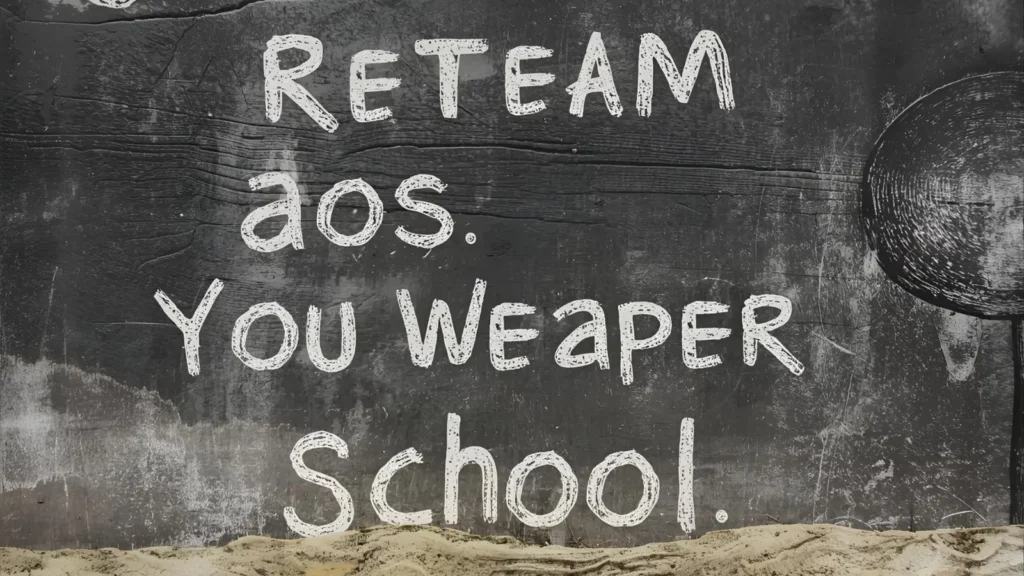 RETEAM
aos.
YOU WEAPER
School.